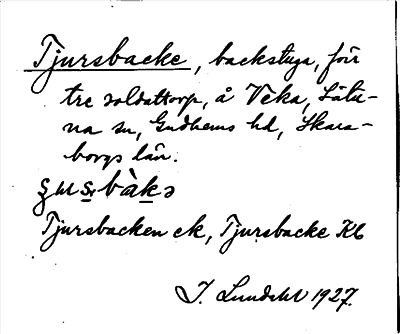 Tjursbacke, backstuga, förr
tre soldattorp, å Veka, Sätu-
na sn, Gudhems hd, Skara-
borgs län.
Tjursbacken ek, Tjursbacke Kb
J. Lundahl 1927.